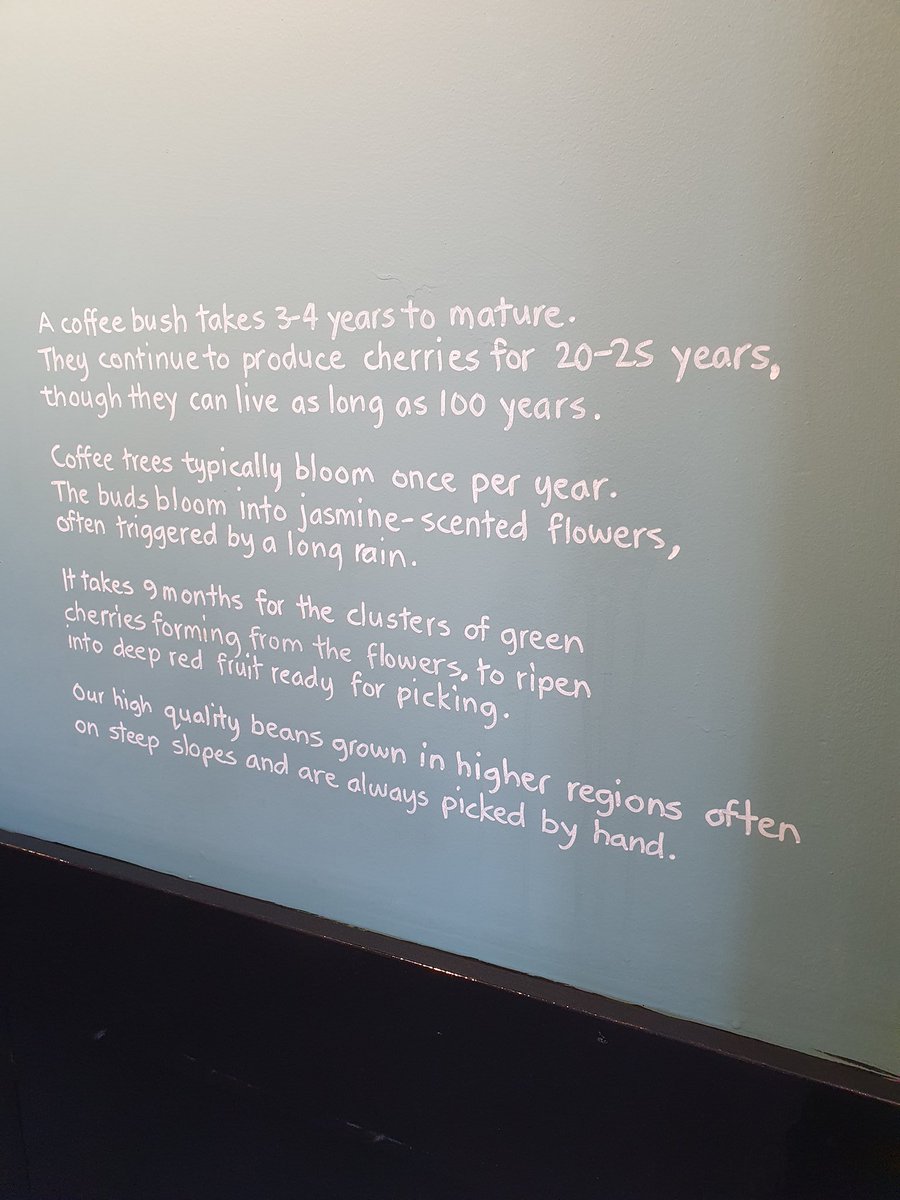 A coffee bush takes 3-4 years to mature.
They continue to produce cherries for 20-25 years,
though they can live as long as 100 years.
Coffee trees typically bloom once per year.
The buds bloom into jasmine-scented flowers,
often triggered by a long rain.
It takes 9 months for the clusters of green
cherries forming from the flowers, to ripen
into deep red fruit ready for picking.
Our high quality beans grown in higher regions often
on steep slopes and are always picked by hand.